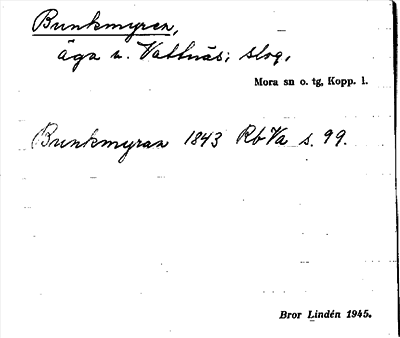 Bunkmyren,
äga u. Vattnäs; slog.
Mora sn o. tg, Kopp. l.
Bunkmyran 1843 Rb Va s. 99.
Bror Lindén 1945.